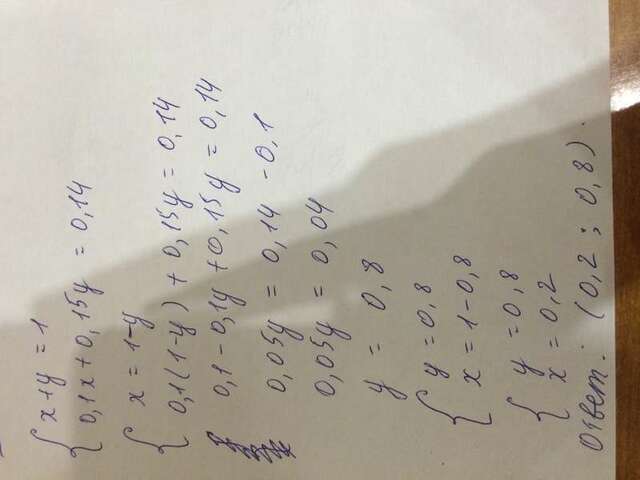 x+y = 1
0,1x+0,15y = 0,14
x = 1-y
0,1(1-y) + 0,15y = 0,14
0,1-0,1y+0,15y = 0,14
0,05y = 0,14 -0,1
0,05y = 0,04
y = 0,8
y = 0,8
x = 1-0,8
y = 0,8
x = 0,2
Ответ: (0,2 ; 0,8).